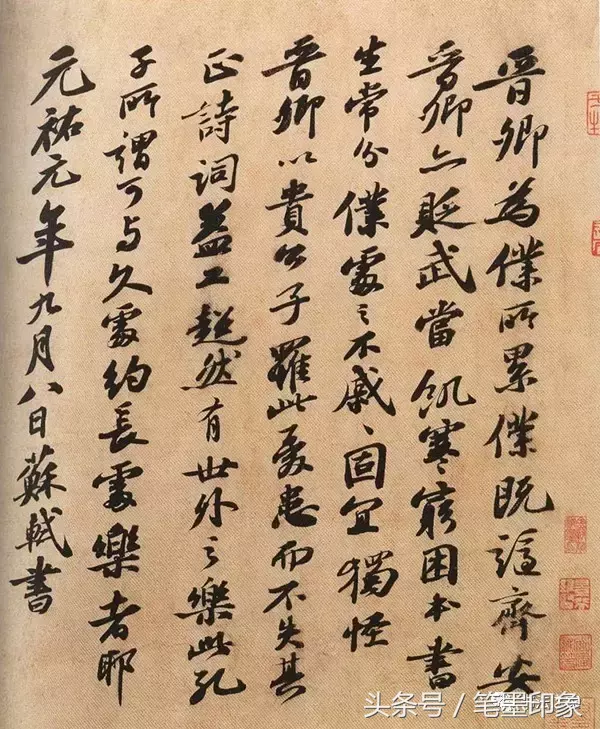 晉卿為僕所累僕既謫齊安
晉卿亦貶武當飢寒窮困本書
生常分僕處之不戚戚固宜獨怪
晉卿以貴公子罹此憂患而不失其
正詩詞益工超然有世外之樂此孔
子所謂可与久處約長處樂者耶
元祐元年九月八日蘇軾書
头条号/笔墨印象